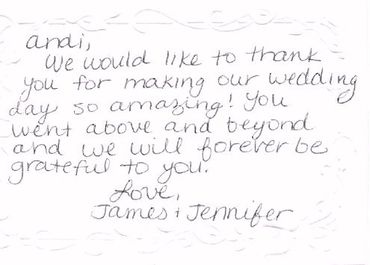 andi,
We would like to thank
you for making our wedding
day so amazing! You
went above and beyond
and we will forever be
grateful to you.
Love,
James + Jennifer